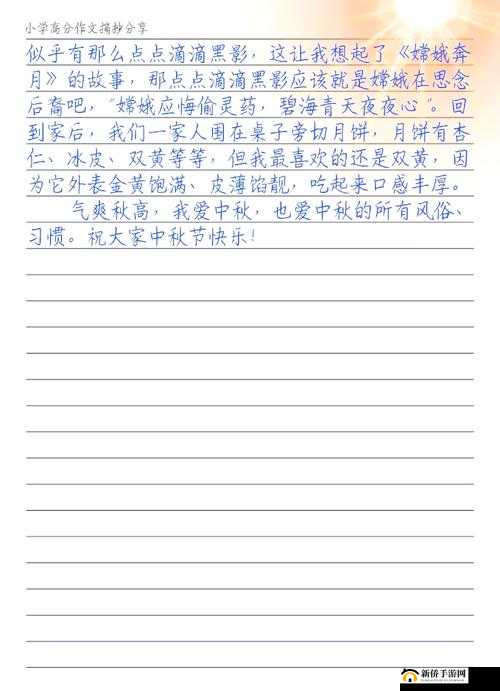 小学高分作文摘抄分享
似乎有那么点点滴滴黑影，这让我想起了《嫦娥奔
月》的故事，那点点滴滴黑影应该就是嫦娥在思念
后裔吧，“嫦娥应悔偷灵药，碧海青天夜夜心”。回
到家后，我们一家人围在桌子旁切月饼，月饼有杏
仁、冰皮、双黄等等，但我最喜欢的还是双黄，因
为它外表金黄饱满、皮薄馅靓，吃起来口感丰厚。
气爽秋高，我爱中秋，也爱中秋的所有风俗、
习惯。祝大家中秋节快乐！
新侨手游网